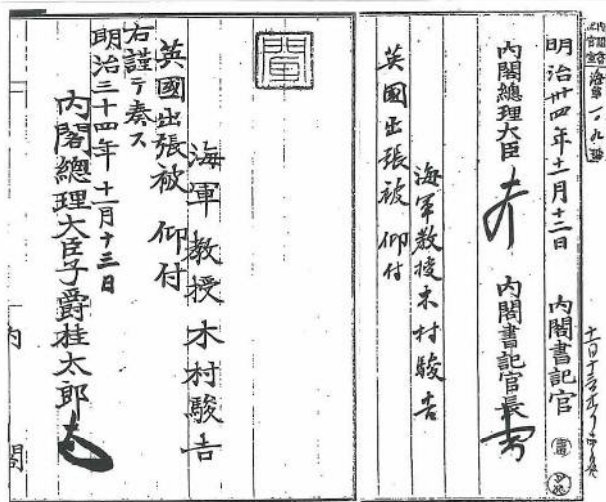 明治卅四年十一月十二日 内閣書記官
内閣總理大臣 内閣書記官長
海軍教授木村駿吉
英國出張被 仰付
聞
海軍教授木村駿吉
英國出張被 仰付
右謹テ奏ス
明治三十四年十一月十三日
内閣總理大臣子爵桂太郎
内閣